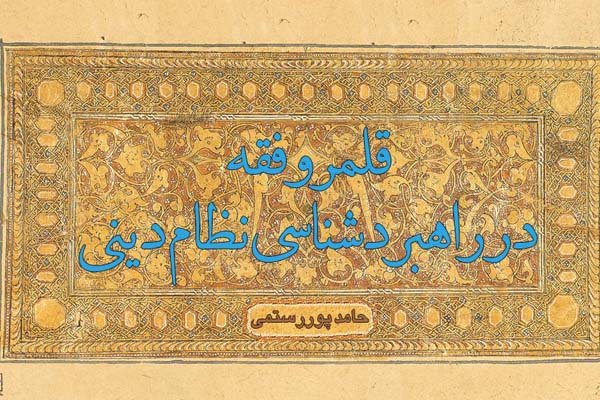 قلمرو فقه
در راهبردشناسی نظام دینی
حامد پوررستمی